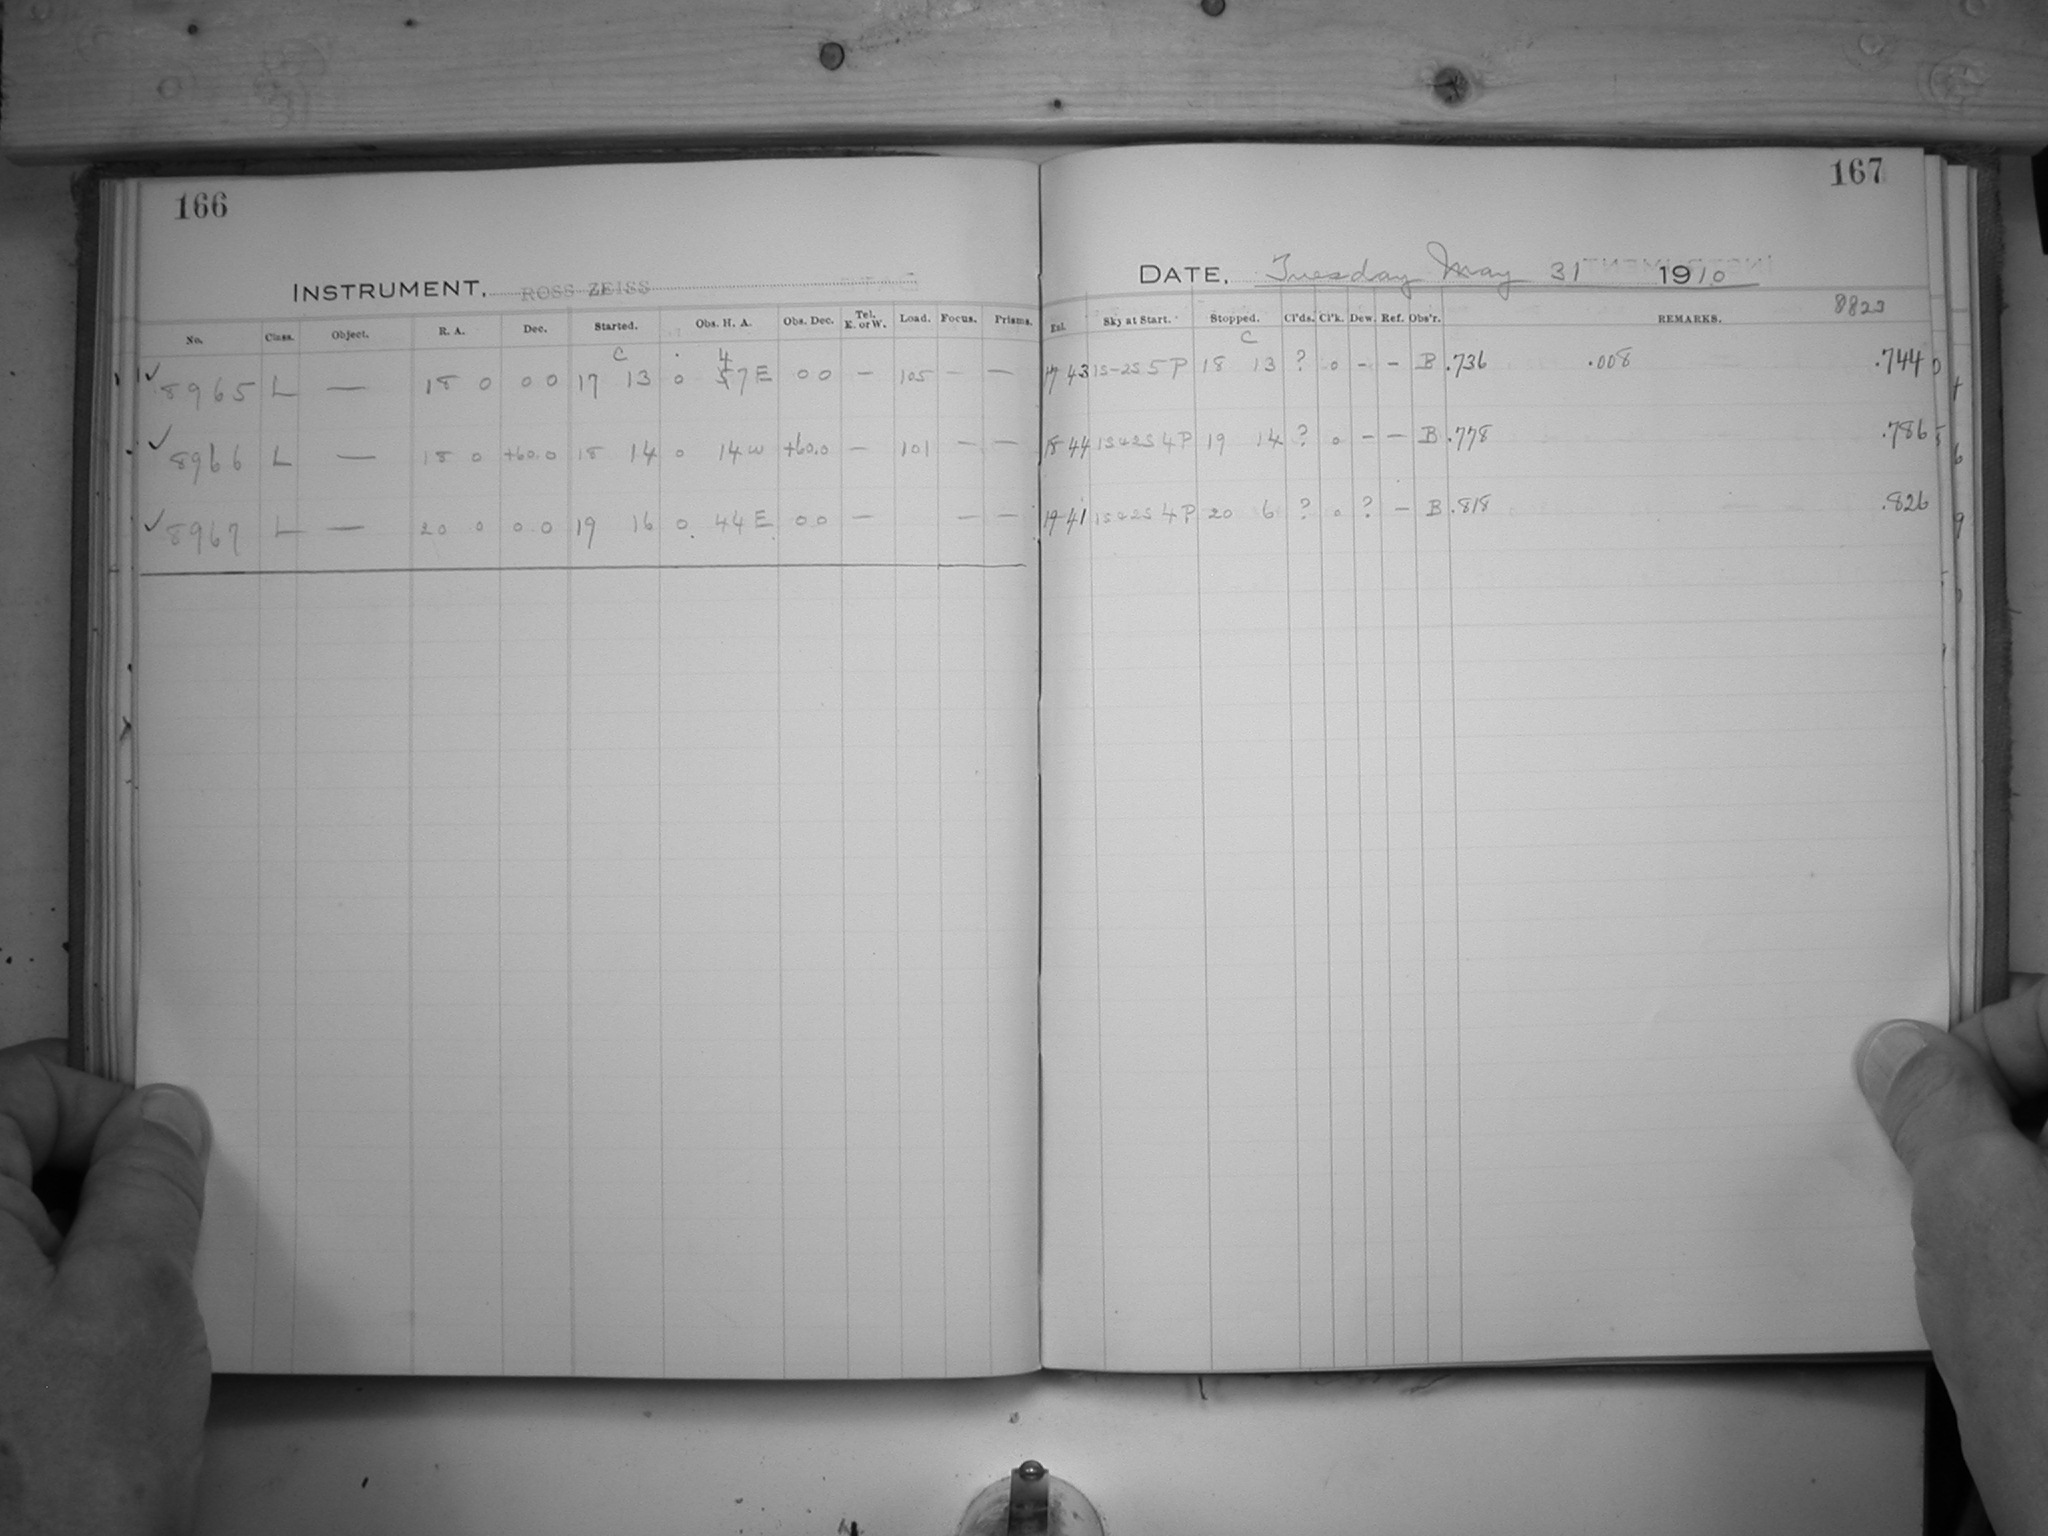 166
INSTRUMENT, ROSS ZEISS
No. Class. Object. R. A. Dec. Started. Obs. H. A. Obs. Dec. Tel. E. or W. Load. Focus. Prisms.
C 4
✓ 8965 L — 18 0 0 0 17 13 0 57 E 0 0 — 105 — —
✓ 8966 L — 18 0 +60.0 18 14 0 14 W +60.0 — 101 — —
✓ 8967 L — 20 0 0.0 19 16 0 44 E 0 0 — — —
167
DATE, Tuesday May 31 1910
8823
Exl. Sky at Start. Stopped. Cl'ds. Cl'k. Dew. Ref. Obs'r. REMARKS.
C
17 43 1S-2S 5 P 18 13 ? 0 - - B .736 .008 .744
18 44 1S&2S 4 P 19 14 ? 0 - - B .778 .786
19 41 1S&2S 4 P 20 6 ? 0 ? - B .818 .826